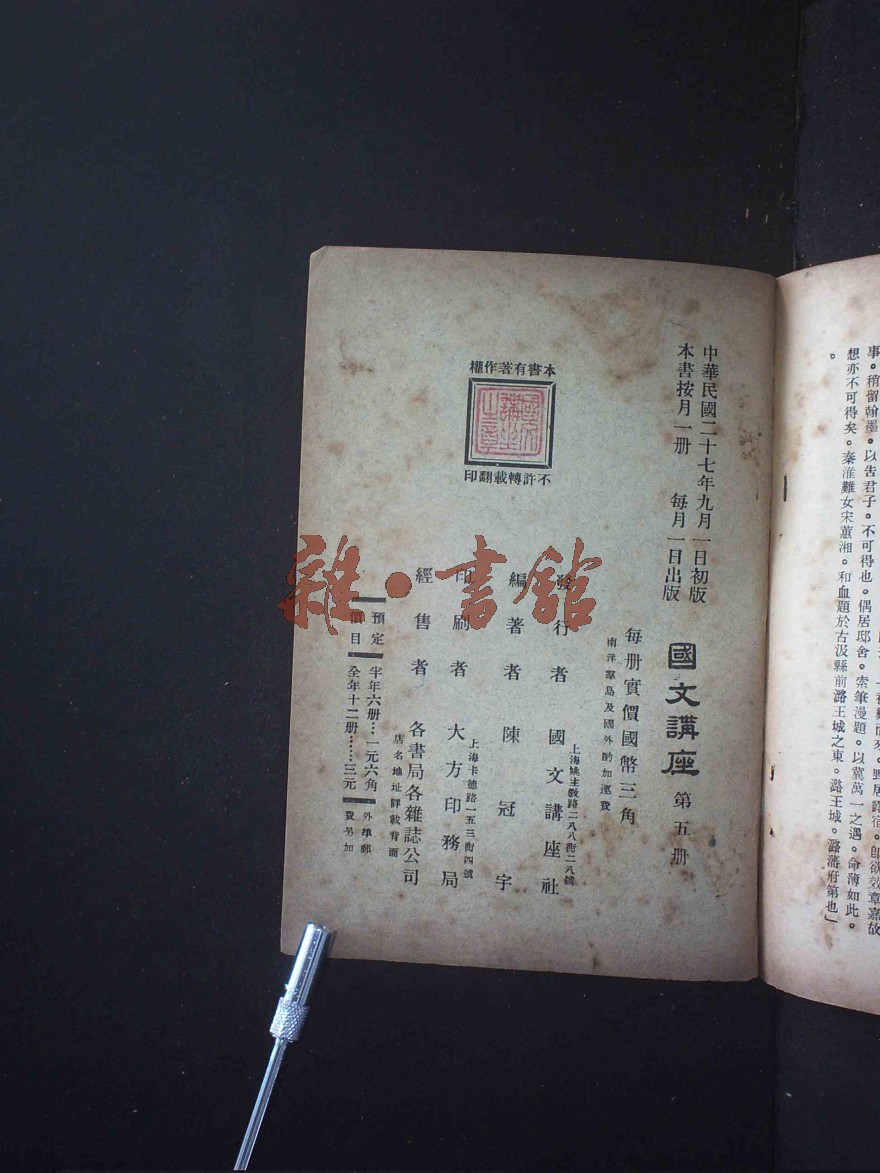 事。稍留翰墨。以告君子。不可得也。偶居邸舍。索筆漫題。以冀萬一之遇。命薄如此。
想亦不可得矣。秦淮難女宋蕙湘。和血題於古汲縣前潞王城之東。潞王城。潞藩府第也」
。
中華民國二十七年九月一日初版
本書按月一册 每月一日出版
國文講座 第五册
每册實價國幣三角
南洋羣島及國外酌加運費
上海姚主教路二八八街二八號
發行者 國文講座社
編著者 陳冠宇
上海卡德路一五三街四號
印刷者 大方印務局
經售者 各書局各雜誌公司
店名地址詳載背面
預定價目
半年六册…一元六角
全年十二册……三元
外埠郵費另加
本書有著作權
國文講座之章
不許轉載翻印
雜·書館